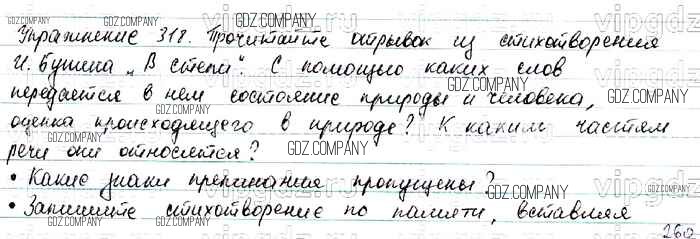 Упражнение 318. Прочитайте отрывок из стихотворения
И. Бунина „В степи“. С помощью каких слов
передается в нем состояние природы и человека,
оценка происходящего в природе? К каким частям
речи они относятся?
• Какие знаки препинания пропущены?
• Запишите стихотворение по памяти, вставляя
260
GDZ.COMPANY
GDZ.COMPANY
GDZ.COMPANY
GDZ.COMPANY
GDZ.COMPANY
GDZ.COMPANY
GDZ.COMPANY
GDZ.COMPANY
GDZ.COMPANY